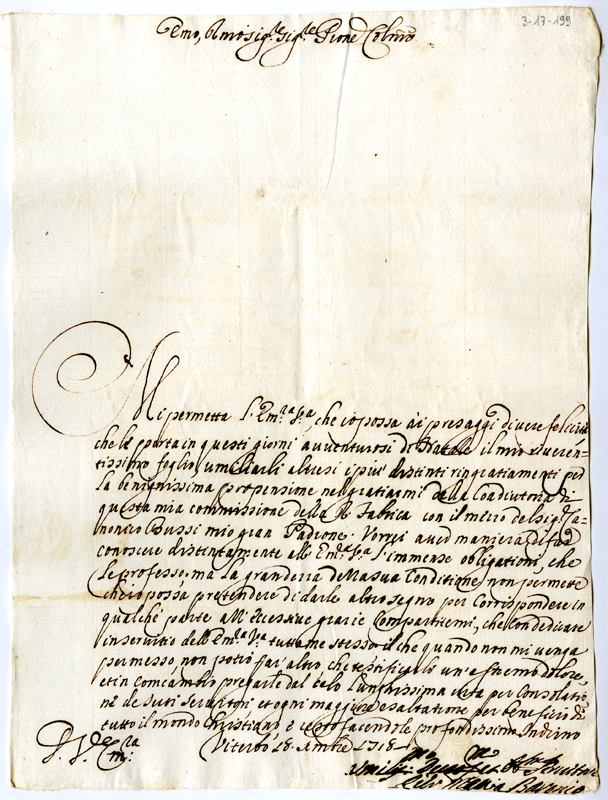 3-17-199
Emo, Rmo Sig.r Sig.re Prone Colmo
Mi permetta l'Em.za V.ra, che io possa ai presaggi di vere felicità
che le porta in questi giorni avventurosi di Natale il mio riveren-
tissimo foglio, umiliarli altresi i più distinti ringratiamenti per
la benignissima propensione nel gratiarmi della Coadiutoria di
questa mia commissione della R. Fabrica con il mezzo del sig.r Ca-
nonico Bussi mio gran Padrone. Vorrei aver maniera di far
conoscere distintamente all'Em.za V.ra l'immense obligationi, che
le professo; ma la grandezza della sua Conditione non permette
che io possa pretendere di darle altro segno per corrispondere in
qualche parte all'eccessive grazie compartitemi, che con dedicare
in servitio dell'Em.za V.ra tutto me stesso il che quando non mi venga
permesso non potrò far altro che testificarle un'estremo dolore,
et in comcambio pregarle dal Celo lunghissima vita per consolatio-
ne de suoi servitori et ogni maggiore esaltatione per beneficio di
tutto il mondo Christiano, e resto facendole profondissimo Inchino
Viterbo 18. Xmbre 1718
D. V. Em.za
Umilis.mo Devot.mo Obb.mo Servitore